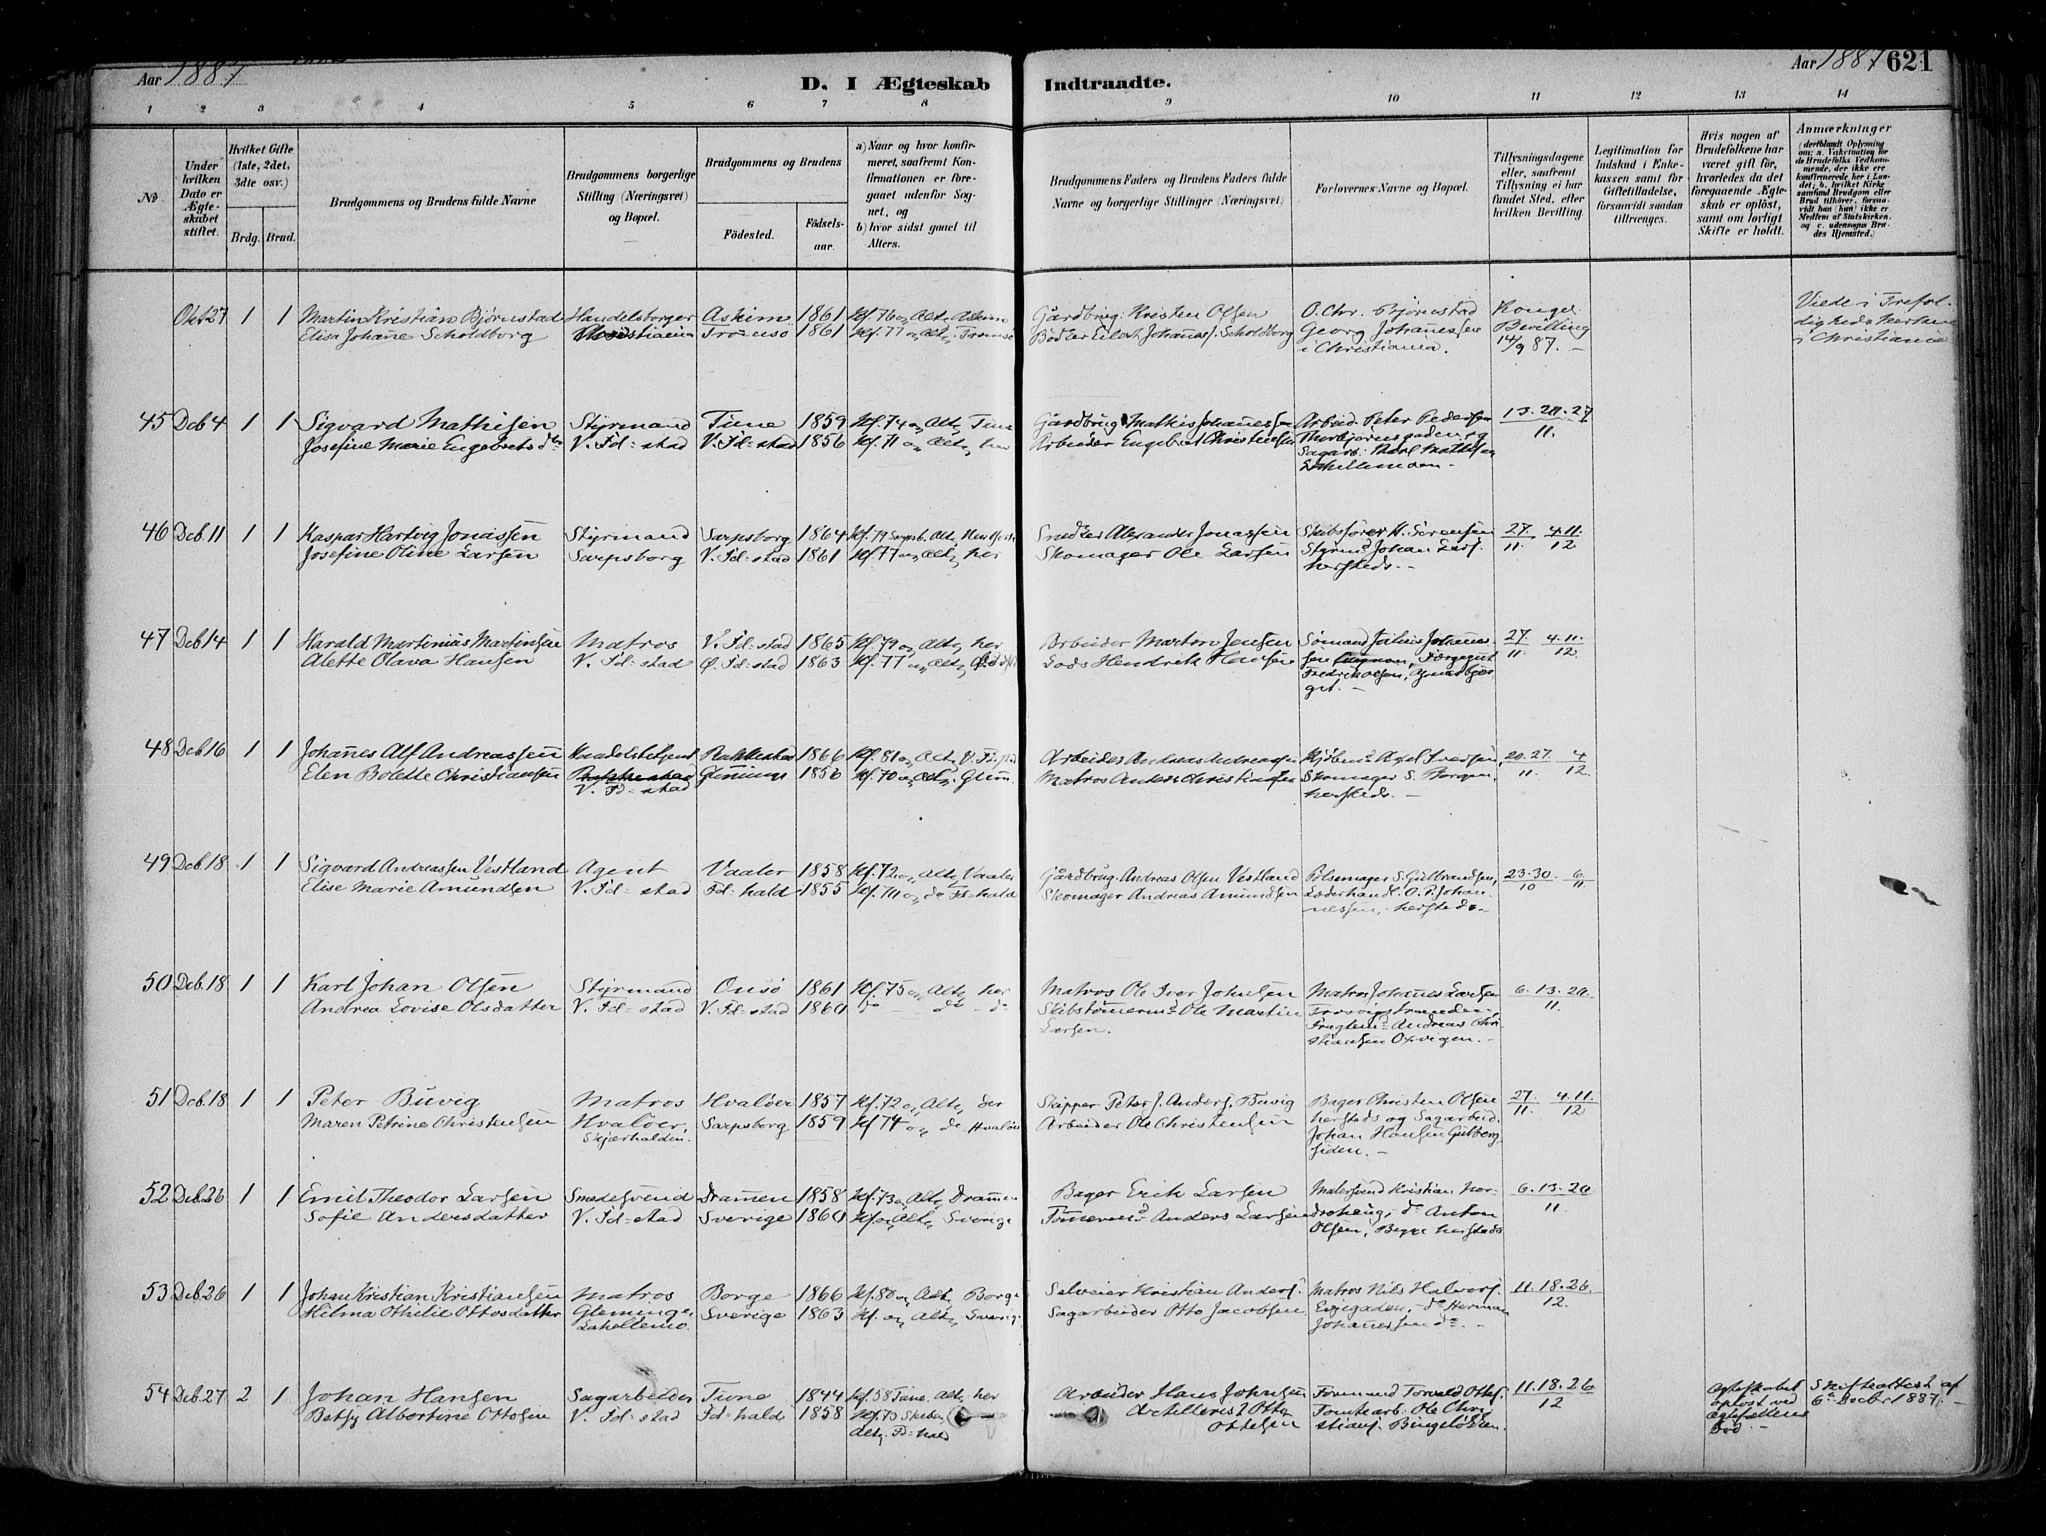 Aar 1887
D. I Ægteskab Indtraadte.
Aar 1887 621
1 2 3 4 5 6 7 8 9 10 11 12 13 14
No
Under hvilken Dato er Ægteskabet stiftet.
Hvilket Gifte (1ste, 2det, 3die osv.)
Brdg. Brud.
Brudgommens og Brudens fulde Navne
Brudgommens borgerlige Stilling (Næringsvei) og Bopæl.
Brudgommens og Brudens
Fødested.
Fødselsaar.
a) Naar og hvor konfirmeret, saafremt Konfirmationen er foregaaet udenfor Sognet, og
b) hvor sidst gaaet til Alters.
Brudgommens Faders og Brudens Faders fulde Navne og borgerlige Stillinger (Næringsvei)
Forlovernes Navne og Bopæl.
Tillysningsdagene eller, saafremt Tillysning ei har fundet Sted, efter hvilken Bevilling.
Legitimation for Indskud i Enkekassen samt for Giftetilladelse, forsaavidt saadan tiltrænges.
Hvis nogen af Brudefolkene har været gift før, hvorledes da det foregaaende Ægteskab er opløst, samt om lovligt Skifte er holdt.
Anmærkninger (deriblandt Oplysning om: a. Vakcination for de Brudefolks Vedkommende, der ikke ere konfirmerede her i Landet; b. hvilket Kirkesamfund Brudgom eller Brud tilhører, forsaavidt han (hun) ikke er Medlem af Statskirken, og c. udensogns Brudes Hjemsted.)
Okt 27 1 1 Martin Kristian Bjørnstad Handelsborger Askim 1861 Kf. 76 og Alt. Askim Gårdbrug. Kristen Olsen O. Chr. Bjørnstad Kongel. Viede i Trefol-
Elisa Johane Scholdborg Christiania Tromsø 1861 Kf. 77 og Alt. Tromsø Bødker Eilert Johannes. Scholdborg Georg Johanesen Bevilling digheds kirken
i Christiania. 14/9 87. - i Christiania
45 Dcb 4 1 1 Sigvard Mathisen Styrmand Tune 1859 Kf. 74 og Alt. Tune Gårdbrug. Mathis Johanessen Arbeid. Peter Pedersen 13. 20. 27
Josefine Marie Engebretsdtr V. Fd=stad V. Fd=stad 1856 Kf. 71 og Alt. her Arbeider Engebret Christensen Thorbjørnsgaden og 11.
Sagarb. Karl Mathisen
46 Dcb. 11 1 1 Kaspar Hartvig Jonassen Styrmand Sarpsborg 1864 Kf. 79 Sarpsb. Alt. Smed Alexander Jonassen Skibsfører H. Sørensen 27. 4. 11.
Josefine Oline Larsen Sarpsborg V. Fd=stad 1861 Kf. 77 og Alt. her Skomager Ole Larsen Styrmd. Johan Lars. 11. 12
hersteds. -
47 Dcb 14 1 1 Harald Martinius Martinsen Matros V. Fd=stad 1865 Kf. 79 og Alt. her Arbeider Martin Jensen Sømand Julius Johannes- 27. 4. 11.
Alette Olava Hansen V. Fd=stad Ø. Fd=stad 1863 Kf. 77 og Alt. Lods Hendrik Hansen sen 11. 12.
Fredrik Olsen,
48 Dcb 16 1 1 Johanes Alf Andreassen Handelsbetjent Rakkestad 1866 Kf. 81 og Alt. V. Fd=stad Arbeider Andreas Andreassen Kjøbmd Axel 20. 27. 4
Elen Bolette Christiansen V. Fd=stad Glemmen 1856 Kf. 70 og Alt. Glem. Matros Anders Christiansen Skomager S. Borgen, 11. 12.
hersteds. -
49 Dcb. 18 1 1 Sigvard Andreassen Vestland Agent Vaaler 1858 Kf. 72 og Alt. Vaaler Gårdbrug. Andreas Olsen Vestland Pølsemager S. Gulbrandsen, 23. 30. 6.
Elise Marie Amundsen V. Fd=stad Fd=hald 1855 Kf. 71 og do Fd=hald Skomager Andreas Amundsen Læderhandl. O. P. Johan- 10 11
nessen, hersteds. -
50 Dcb. 18 1 1 Karl Johan Olsen Styrmand Onsø 1861 Kf. 75 og Alt. her Matros Ole Iver Johnsen Matros Johanes Larsen 6. 13. 20.
Andrea Lovise Olsdatter V. Fd=stad V. Fd=stad 1860 do do do Skibstømermd Ole Martin Trosvigstranden, 11.
Larsen. Fragtemd Andreas Chri-
stiansen Oxvigen. -
51 Dcb. 18 1 1 Peter Buvig Matros Hvaløer 1857 Kf. 72 og Alt. der Skipper Peter J. Anders. Buvig Bager Christen Olsen 27. 4. 11.
Maren Petrine Christensen Hvaløer, Sarpsborg 1859 Kf 74 og do Hvaløer Arbeider Ole Christensen hersteds og Sagarbeid. 11. 12
Skjærhalden. Johan Hansen Gulberg-
siden. -
52 Dcb. 26 1 1 Emil Theodor Larsen Smedesvend Dramen 1858 Kf. 73 og Alt. Dramen Bager Erik Larsen Malersvend Kristian Nor- 6. 13. 20
Sofie Andersdatter V. Fd=stad Sverige 1860 Kf. og Alt. Sverige Tømermd Anders Larsen drehaug, do Anton 11.
Olsen, Begge hersteds
53 Dcb. 26 1 1 Johan Kristian Kristiansen Matros Borge 1866 Kf. 80 og Alt. Borge Selveier Kristian Anders. Matros Nils Halvors. 11. 18. 26.
Hilma Othilie Ottosdatter Glemminge, Sverige 1863 Kf. og Alt. Sverige Sagarbeider Otto Jacobsen Enjegaden, - do Herman 12.
Lahellemo. Johanessen do. -
54 Dcb. 27 2 1 Johan Hansen Sagarbeider Tune 1844 Kf. 58 Tune, Alt. her Arbeider Hans Johnsen Formand Torvald Ottes. 11. 18. 26 Ægteskabet Skifteattest af
Betsy Albertine Ottosen V. Fd=stad Fd=hald 1858 Kf. 73 Artillerist Otto Tomtearb. Ole Chri- 12 opløst ved 6te Decbr 1887. -
Alt. Fd=hald Ottesen stians. Bingeløkken. Ægtefællens
Død. -